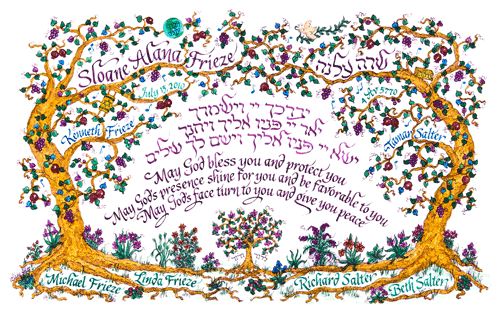 Sloane Alana Frieze
שרה כלנה
July 13, 2010
Kenneth Frieze
Tamar Salter
יברכך יי וישמרך
יאר יי פניו אליך ויחנך
ישא יי פניו אליך וישם לך שלום
May God bless you and protect you
May God's presence shine for you and be favorable to you
May God's face turn to you and give you peace
Michael Frieze
Linda Frieze
Richard Salter
Beth Salter